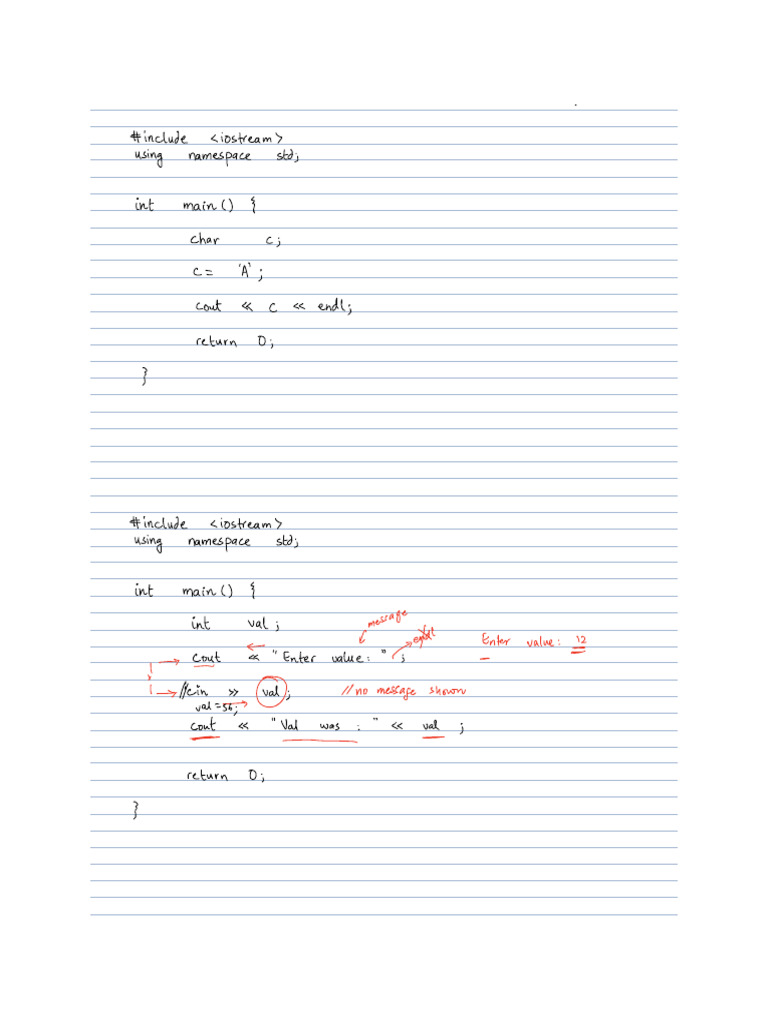 #include <iostream>
using namespace std;
int main() {
char c;
c = 'A';
cout << c << endl;
return 0;
}
#include <iostream>
using namespace std;
int main() {
int val;
message
endl
Enter value: 12
cout << "Enter value: " ;
//cin >> val; //no message shown
val=56;
cout << "Val was : " << val ;
return 0;
}